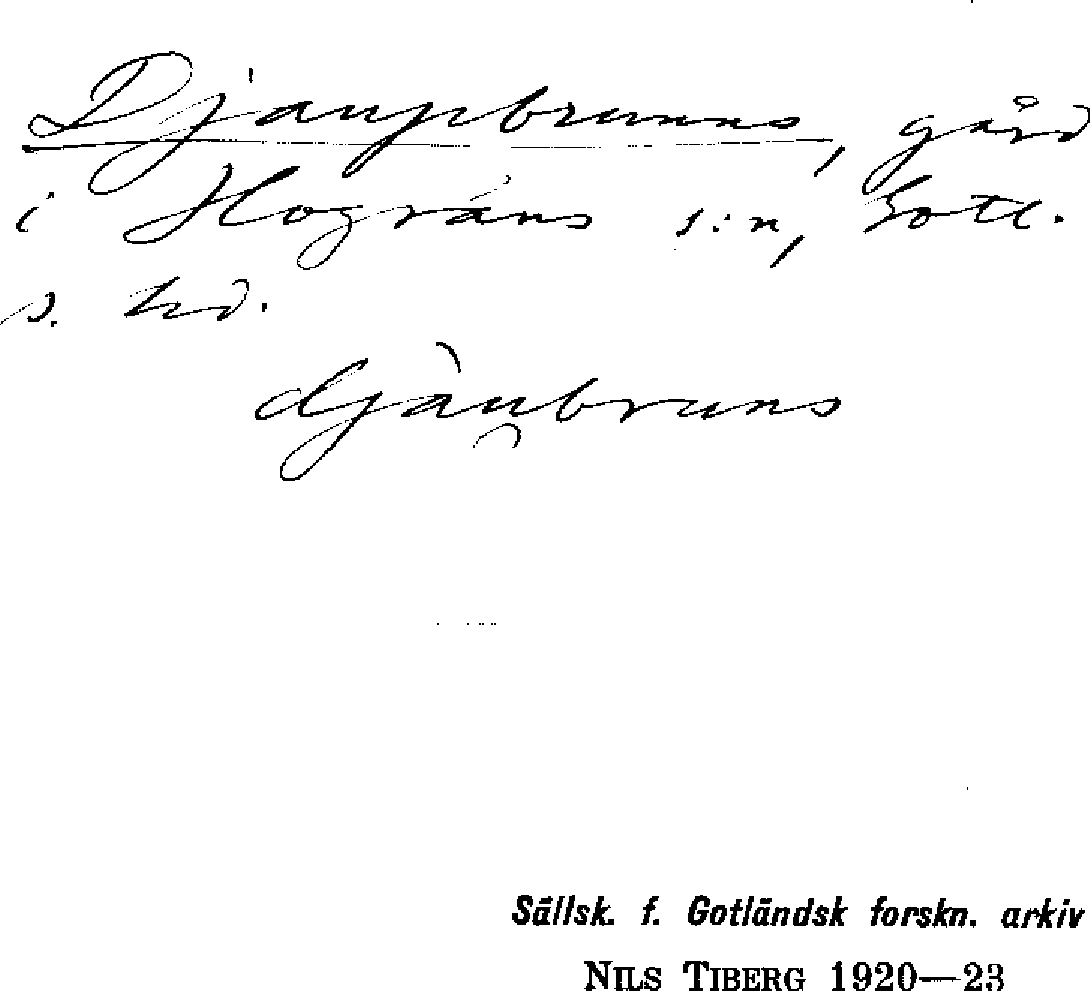 Djaupbrunns, gård
i Hogräns s:n, Gotl.
s. hd.
djàu̯bruns
Sällsk. f. Gotländsk forskn. arkiv
NILS TIBERG 1920—23